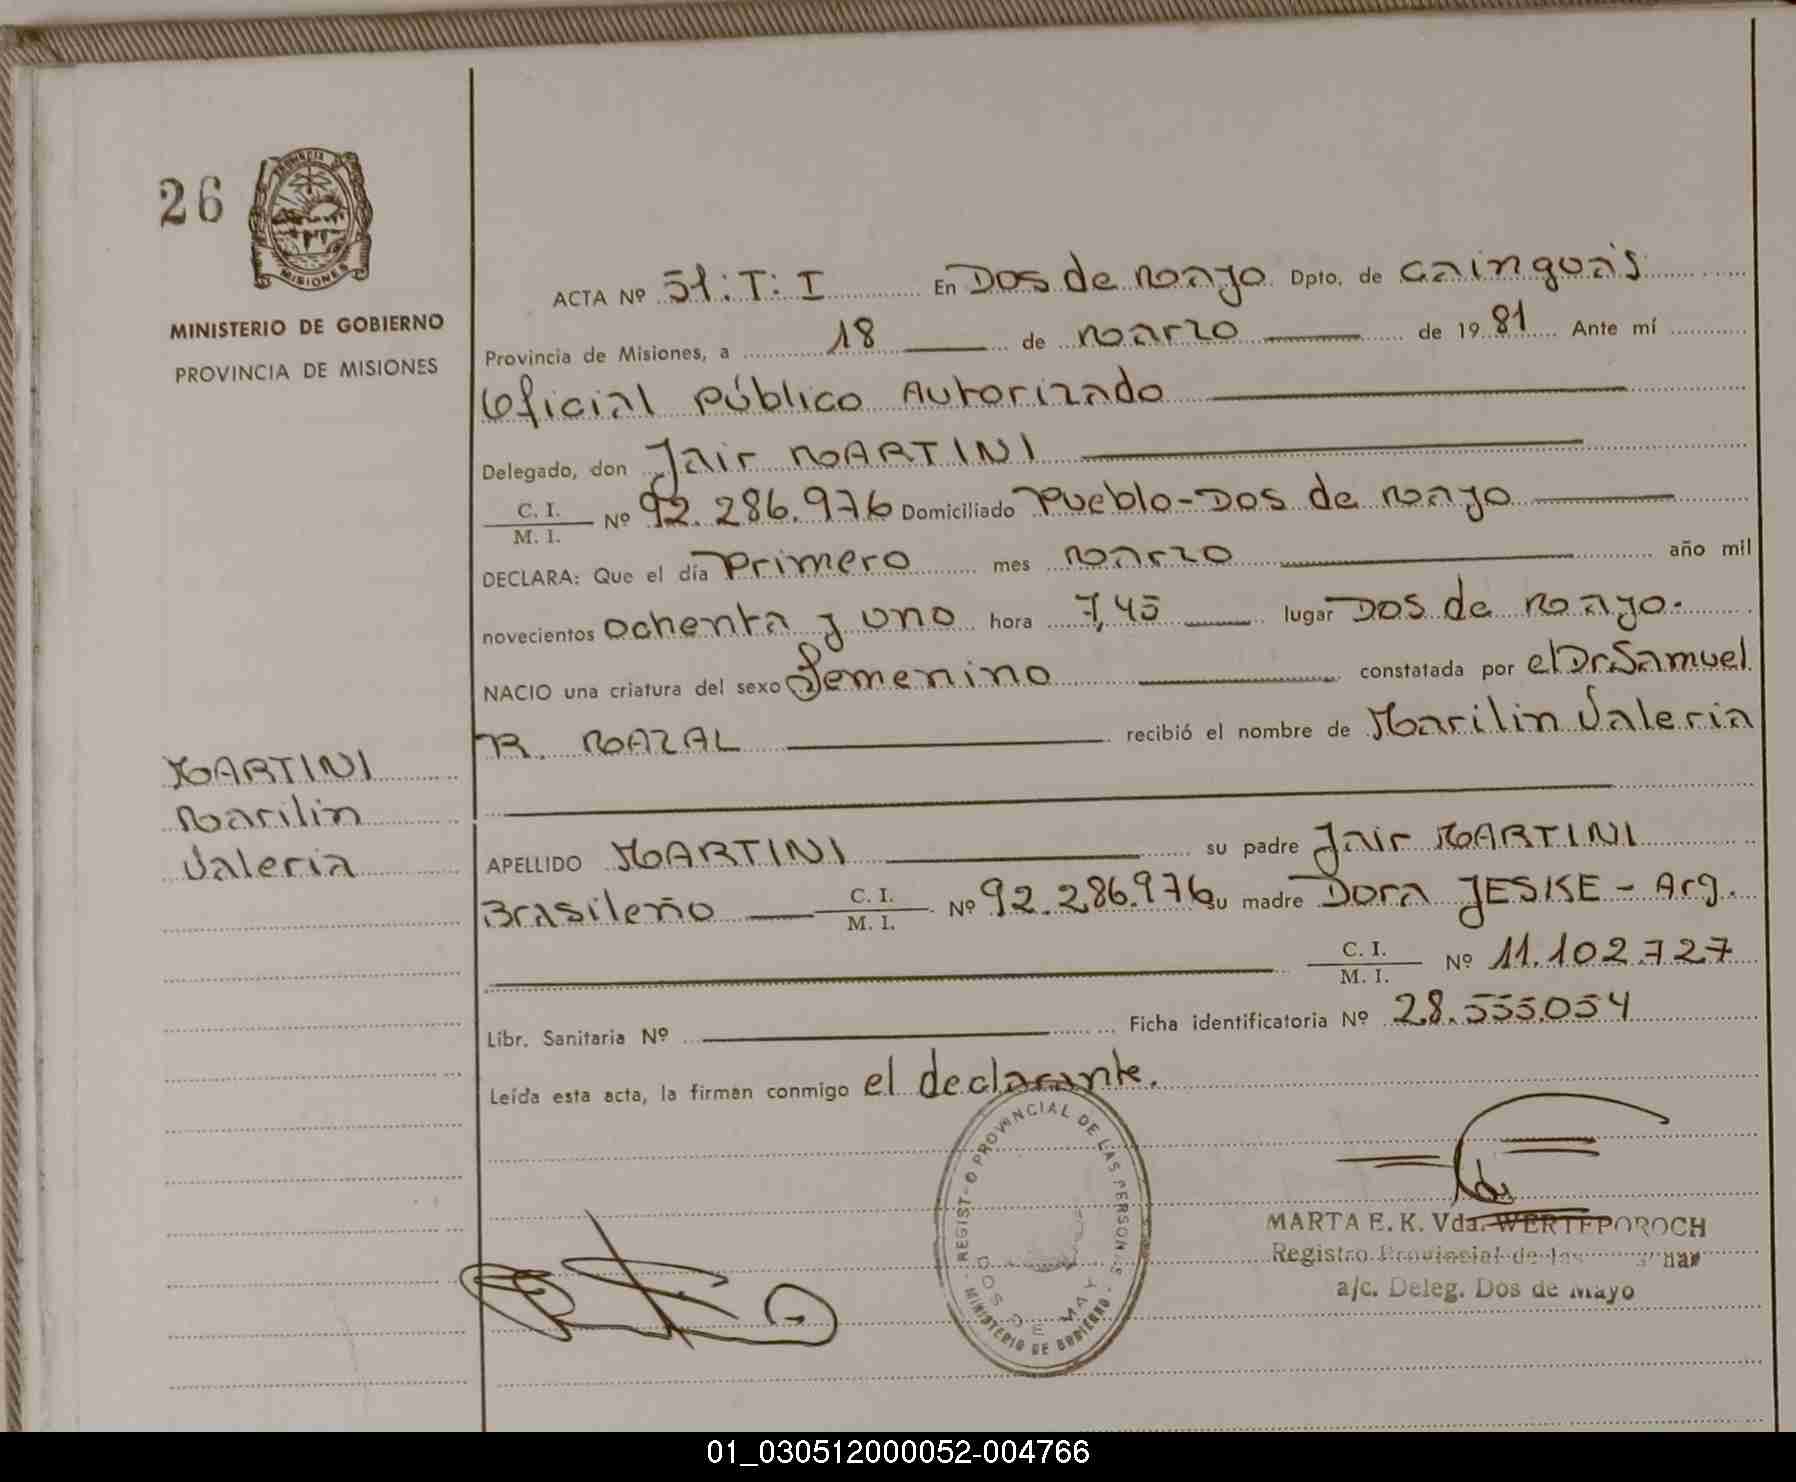 26
PROVINCIA
MISIONES
MINISTERIO DE GOBIERNO
PROVINCIA DE MISIONES
ACTA Nº 51:T:I En Dos de Mayo Dpto. de Cainguás
Provincia de Misiones, a 18 de Marzo de 1981 Ante mí
Oficial Público Autorizado
Delegado, don Jair MARTINI
C. I.
M. I. Nº 92.286.976 Domiciliado Pueblo-Dos de Mayo
DECLARA: Que el día Primero mes Marzo año mil
novecientos ochenta y uno hora 7,45 lugar Dos de Mayo.
NACIO una criatura del sexo Femenino constatada por el Dr. Samuel
R. MAZAL recibió el nombre de Marilin Valeria
MARTINI
Marilin
Valeria
APELLIDO MARTINI su padre Jair MARTINI
Brasileño C. I.
M. I. Nº 92.286.976 su madre Dora JESKE - Arg.
C. I.
M. I. Nº 11.102.727
Libr. Sanitaria Nº Ficha identificatoria Nº 28.555.054
Leída esta acta, la firman conmigo el declarante.
REGIST O PROVINCIAL DE LAS PERSON S
DOS DE MAY
MINISTERIO DE GOBIERNO
MARTA E. K. Vda. WERTEPOROCH
Registro Provincial de las
a/c. Deleg. Dos de Mayo
01_030512000052-004766